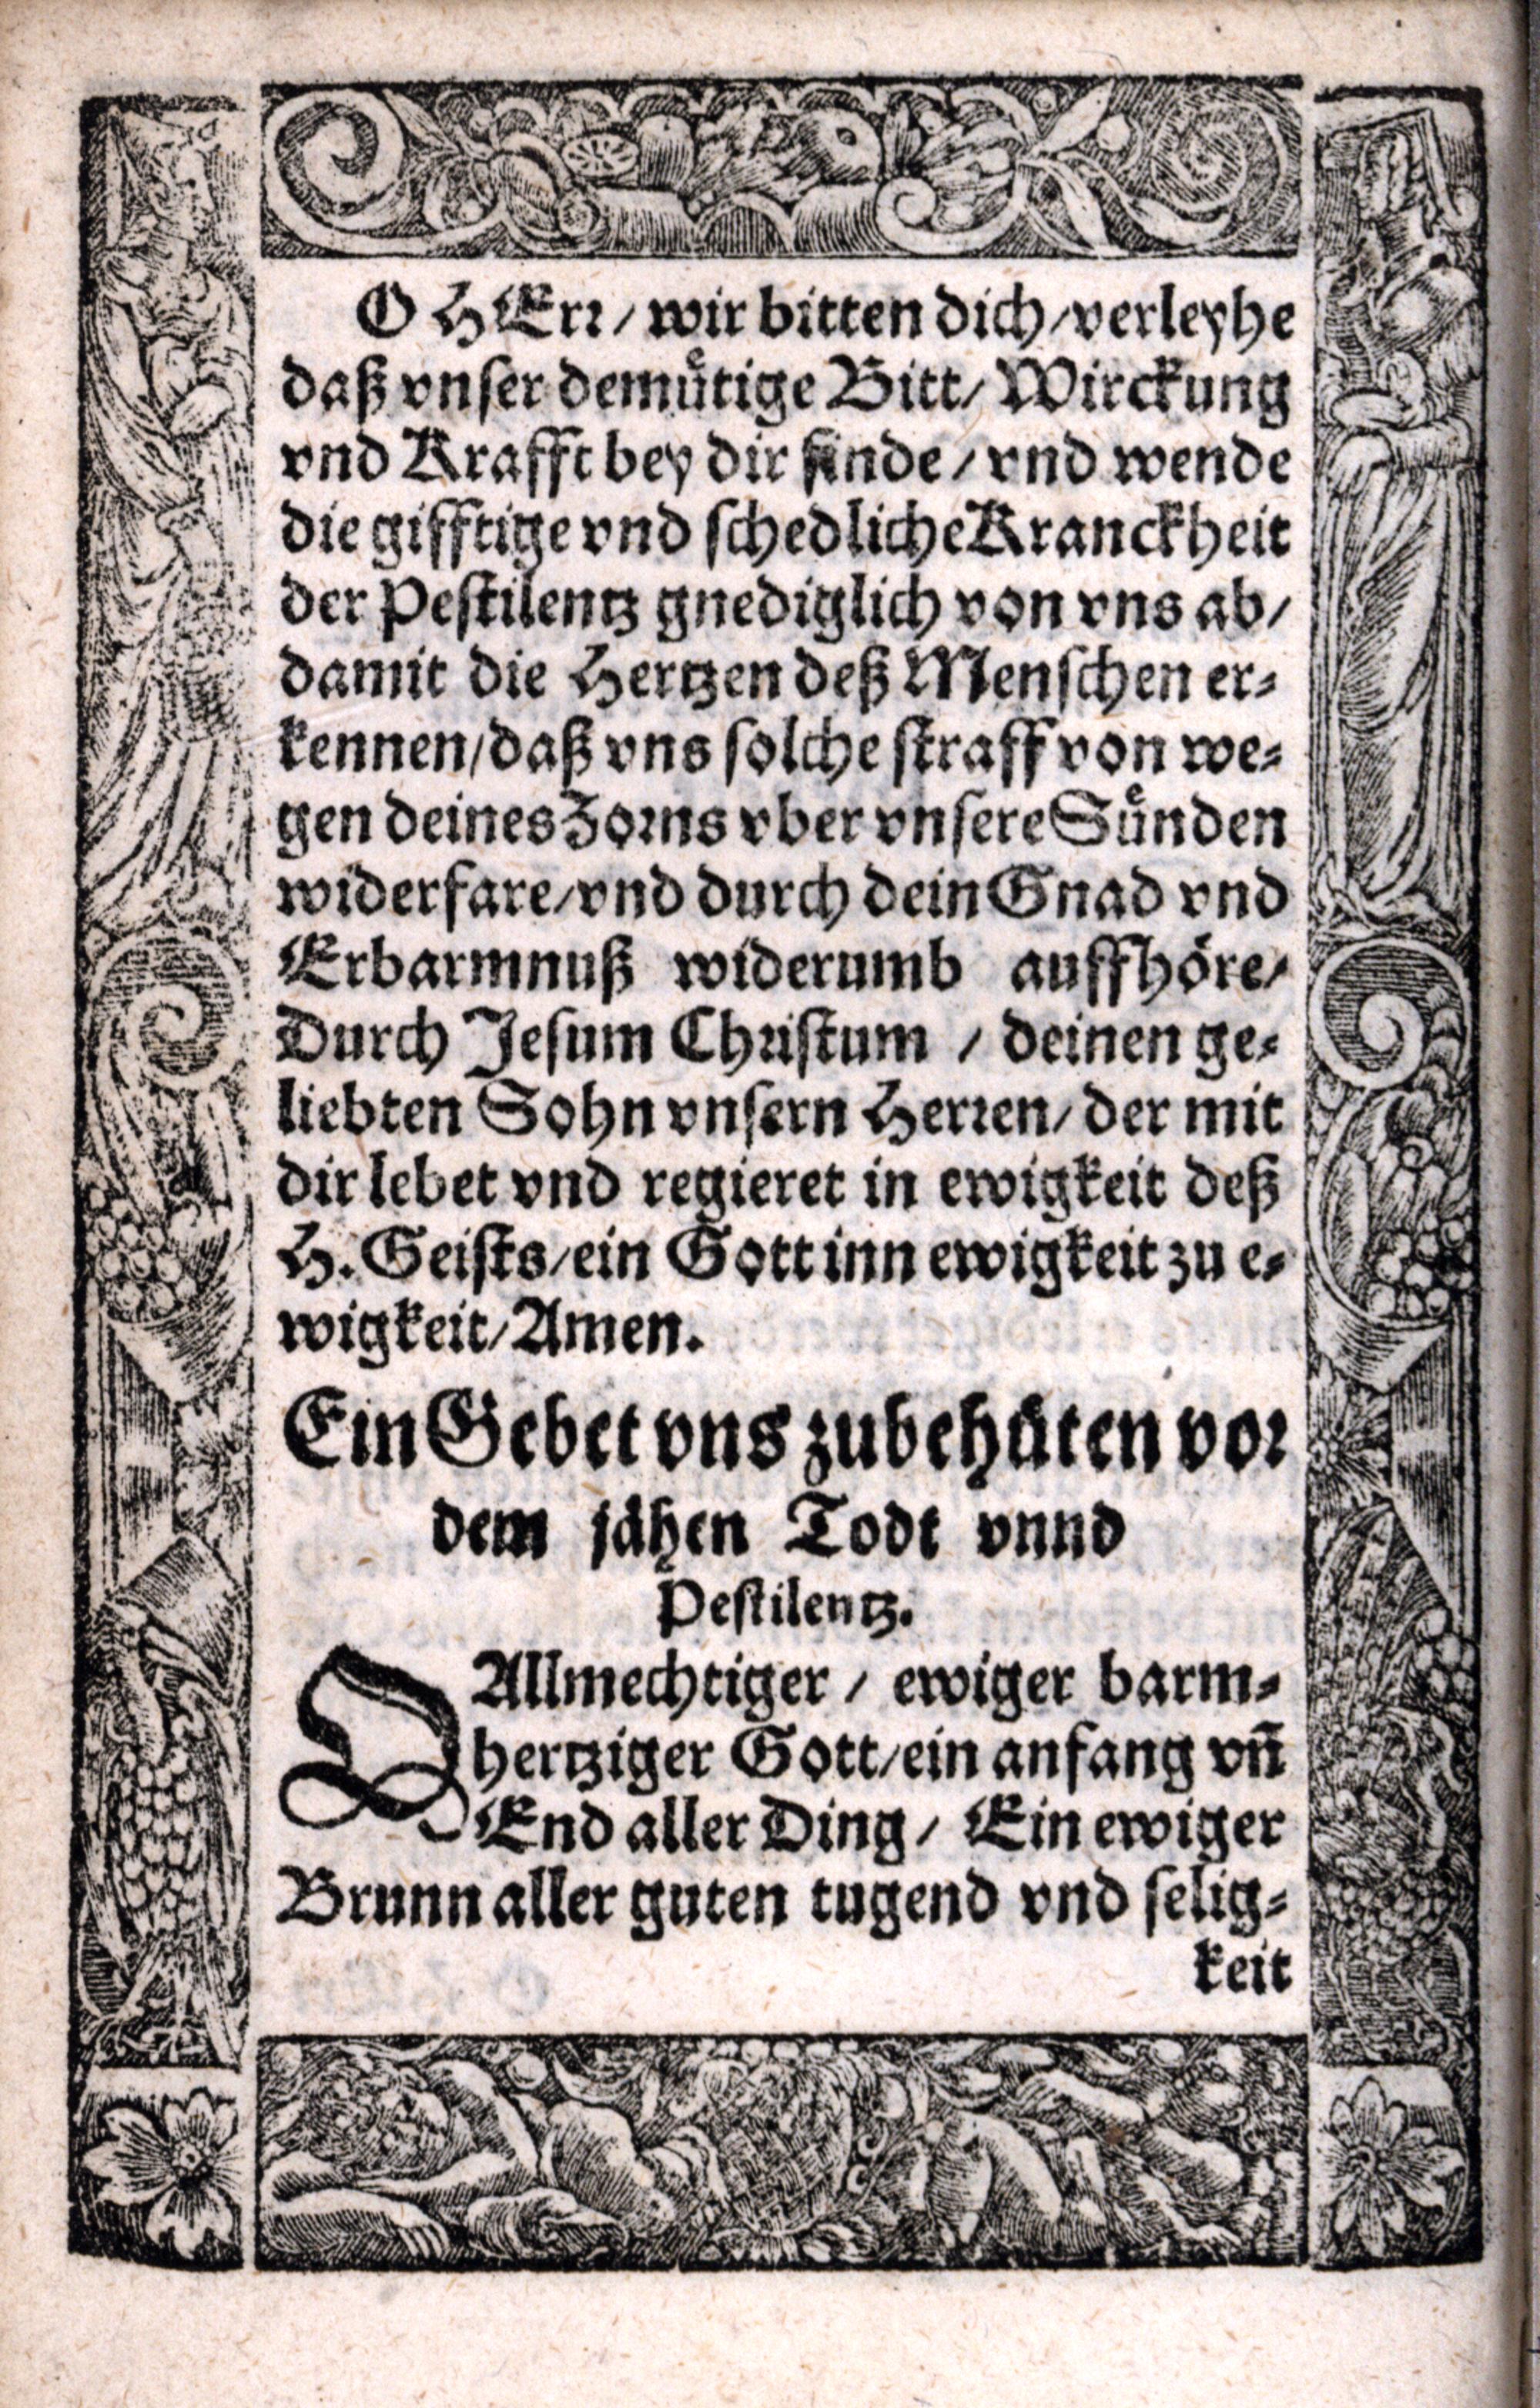 O HErr / wir bitten dich / verleyhe
daß vnser demuͤtige Bitt / Wirckung
vnd Krafft bey dir finde / vnd wende
die gifftige vnd schedliche Kranckheit
der Pestilentz gnediglich von vns ab /
damit die Hertzen deß Menschen er-
kennen / daß vns solche straff von we-
gen deines Zorns vber vnsere Suͤnden
widerfare / vnd durch dein Gnad vnd
Erbarmnuß widerumb auffhöre /
Durch Jesum Christum / deinen ge-
liebten Sohn vnsern Herren / der mit
dir lebet vnd regieret in ewigkeit deß
H. Geists / ein Gott inn ewigkeit zu e-
wigkeit / Amen.
Ein Gebet vns zubehüten vor
dem jähen Todt vnnd
Pestilentz.
O Allmechtiger / ewiger barm-
hertziger Gott / ein anfang vn̄
End aller Ding / Ein ewiger
Brunn aller guten tugend vnd selig-
keit